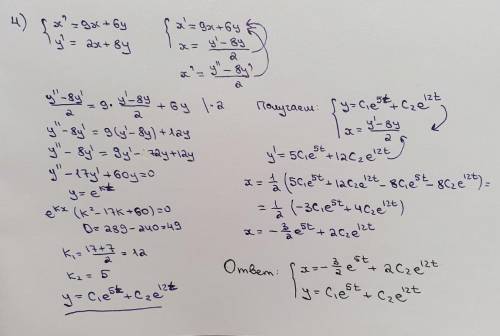 4) { x' = 9x+6y
y' = 2x+8y
{ x' = 9x+6y
x = (y'-8y)/2
x' = (y''-8y')/2
(y''-8y')/2 = 9·(y'-8y)/2 + 6y |·2
y''-8y' = 9(y'-8y)+12y
y''-8y' = 9y'-72y+12y
y''-17y'+60y=0
y=e^{kt}
e^{kx}(k²-17k+60)=0
D=289-240=49
k₁=(17+7)/2=12
k₂=5
y=C₁e^{5t}+C₂e^{12t}
Получаем: { y=C₁e^{5t}+C₂e^{12t}
x=(y'-8y)/2
y'=5C₁e^{5t}+12C₂e^{12t}
x=1/2(5C₁e^{5t}+12C₂e^{12t}-8C₁e^{5t}-8C₂e^{12t})=
=1/2(-3C₁e^{5t}+4C₂e^{12t})
x=-3/2e^{5t}+2C₂e^{12t}
Ответ: { x=-3/2e^{5t}+2C₂e^{12t}
y=C₁e^{5t}+C₂e^{12t}